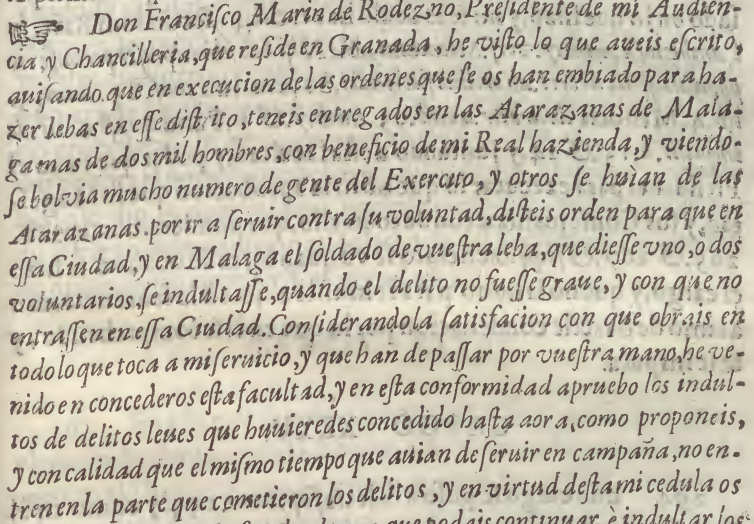 ☞ Don Franciſco Marin de Rodezno, Preſidente de mi Audien-
cia, y Chancilleria, que reſide en Granada, he viſto lo que aueis eſcrito,
auiſando que en execucion de las ordenes que ſe os han embiado para ha-
zer lebas en eſſe diſtrito, teneis entregados en las Atarazanas de Mala-
ga mas de dos mil hombres, con beneficio de mi Real hazienda, y viendo-
ſe bolvia mucho numero de gente del Exercito, y otros ſe huian de las
Atarazanas. por ir a ſeruir contra ſu voluntad, diſteis orden para que en
eſſa Ciudad, y en Malaga el ſoldado de vueſtra leba, que dieſſe vno, ò dos
voluntarios, ſe indultaſſe, quando el delito no fueſſe graue, y con que no
entraſſen en eſſa Ciudad. Conſiderando la ſatisfacion con que obrais en
todo lo que toca a mi ſeruicio, y que han de paſſar por vueſtra mano, he ve-
nido en concederos eſta facultad, y en eſta conformidad apruebo los indul-
tos de delitos leues que huuieredes concedido haſta aora, como proponeis,
y con calidad que el miſmo tiempo que auian de ſeruir en campaña, no en-
tren en la parte que cometieron los delitos, y en virtud deſta mi cedula os
que podais continuar, è indultar los